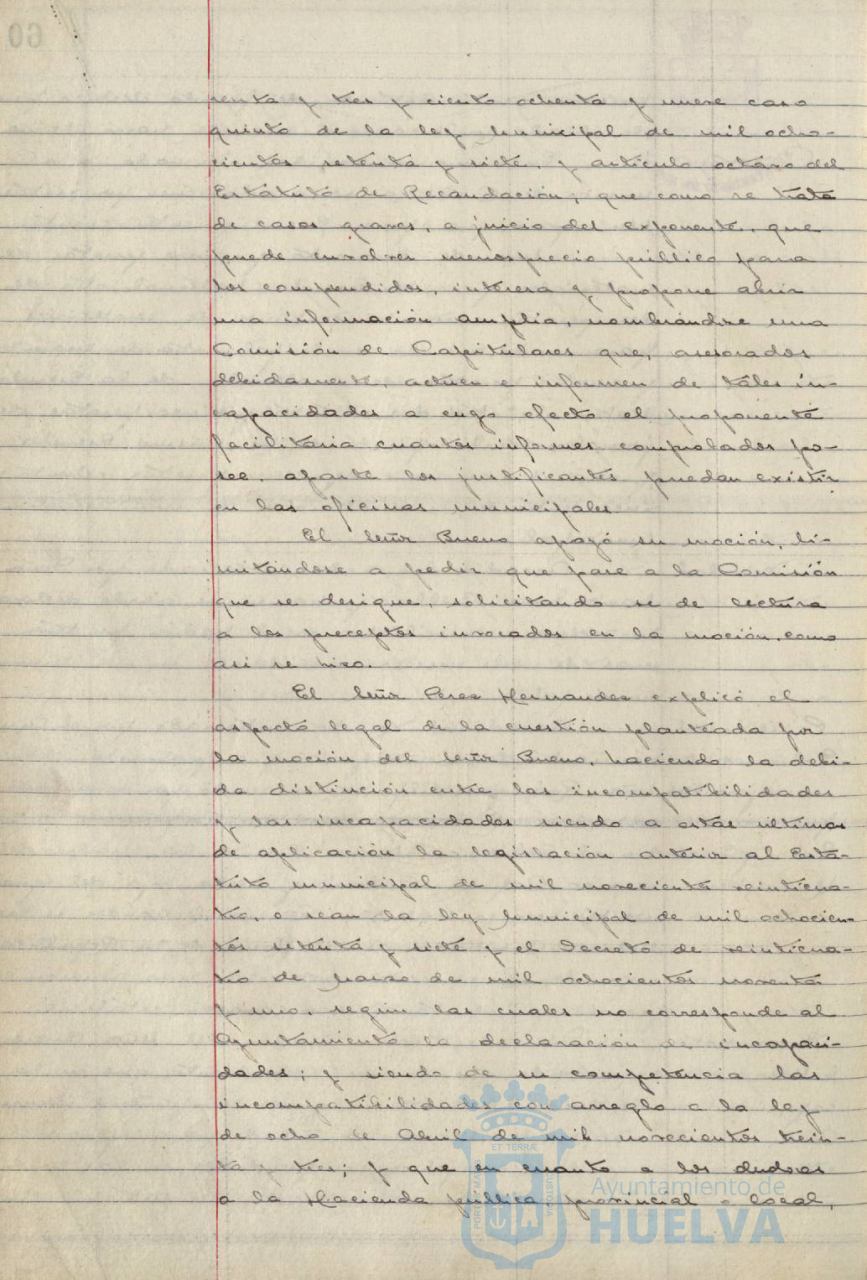 60
renta y tres y ciento ochenta y nueve caso
quinto de la ley Municipal de mil ocho-
cientos setenta y siete, y artículo octavo del
Estatuto de Recaudación; que como se trata
de casos graves, a juicio del exponente, que
puede envolver menosprecio público para
los comprendidos, interesa y propone abrir
una información amplia, nombrándose una
Comisión de Capitulares que, asesorados
debidamente, actúen e informen de tales in-
capacidades a cuyo efecto el proponente
facilitaría cuantos informes comprobados po-
see, aparte los justificantes puedan existir
en las oficinas municipales.
El Señor Bueno apoyó su moción, li-
mitándose a pedir que pase a la Comisión
que se designe, solicitando se de lectura
a los preceptos invocados en la moción, como
así se hizo.
El Señor Perez Hernandez explicó el
aspecto legal de la cuestión planteada por
la moción del Señor Bueno, haciendo la debi-
da distinción entre las incompatibilidades
y las incapacidades siendo a estas últimas
de aplicación la legislación anterior al Esta-
tuto municipal de mil novecientos veinticua-
tro, o sean la ley Municipal de mil ochocien-
tos setenta y siete y el Decreto de veinticua-
tro de Marzo de mil ochocientos noventa
y uno, según las cuales no corresponde al
Ayuntamiento la declaración de incapaci-
dades; y siendo de su competencia las
incompatibilidades con arreglo a la ley
de ocho de Abril de mil novecientos trein-
ta y tres; y que en cuanto a los deudores
a la Hacienda pública, provincial o local,
Ayuntamiento de
HUELVA